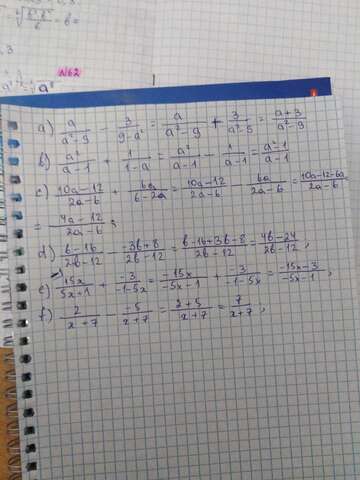 √(b⁴·b²)/b - b =
, 3
№62
a) a/(a²-9) - 3/(9-a²) = a/(a²-9) + 3/(a²-9) = (a+3)/(a²-9)
b) a²/(a-1) + 1/(1-a) = a²/(a-1) - 1/(a-1) = (a²-1)/(a-1)
c) (10a-12)/(2a-6) + 6a/(6-2a) = (10a-12)/(2a-6) - 6a/(2a-6) = (10a-12-6a)/(2a-6)
= (4a-12)/(2a-6);
d) (b-16)/(2b-12) - (-3b+8)/(2b-12) = (b-16+3b-8)/(2b-12) = (4b-24)/(2b-12);
e) 15x/(5x+1) + (-3)/(-1-5x) = (-15x)/(-5x-1) + (-3)/(-1-5x) = (-15x-3)/(-5x-1);
f) 2/(x+7) - (-5)/(x+7) = (2+5)/(x+7) = 7/(x+7);